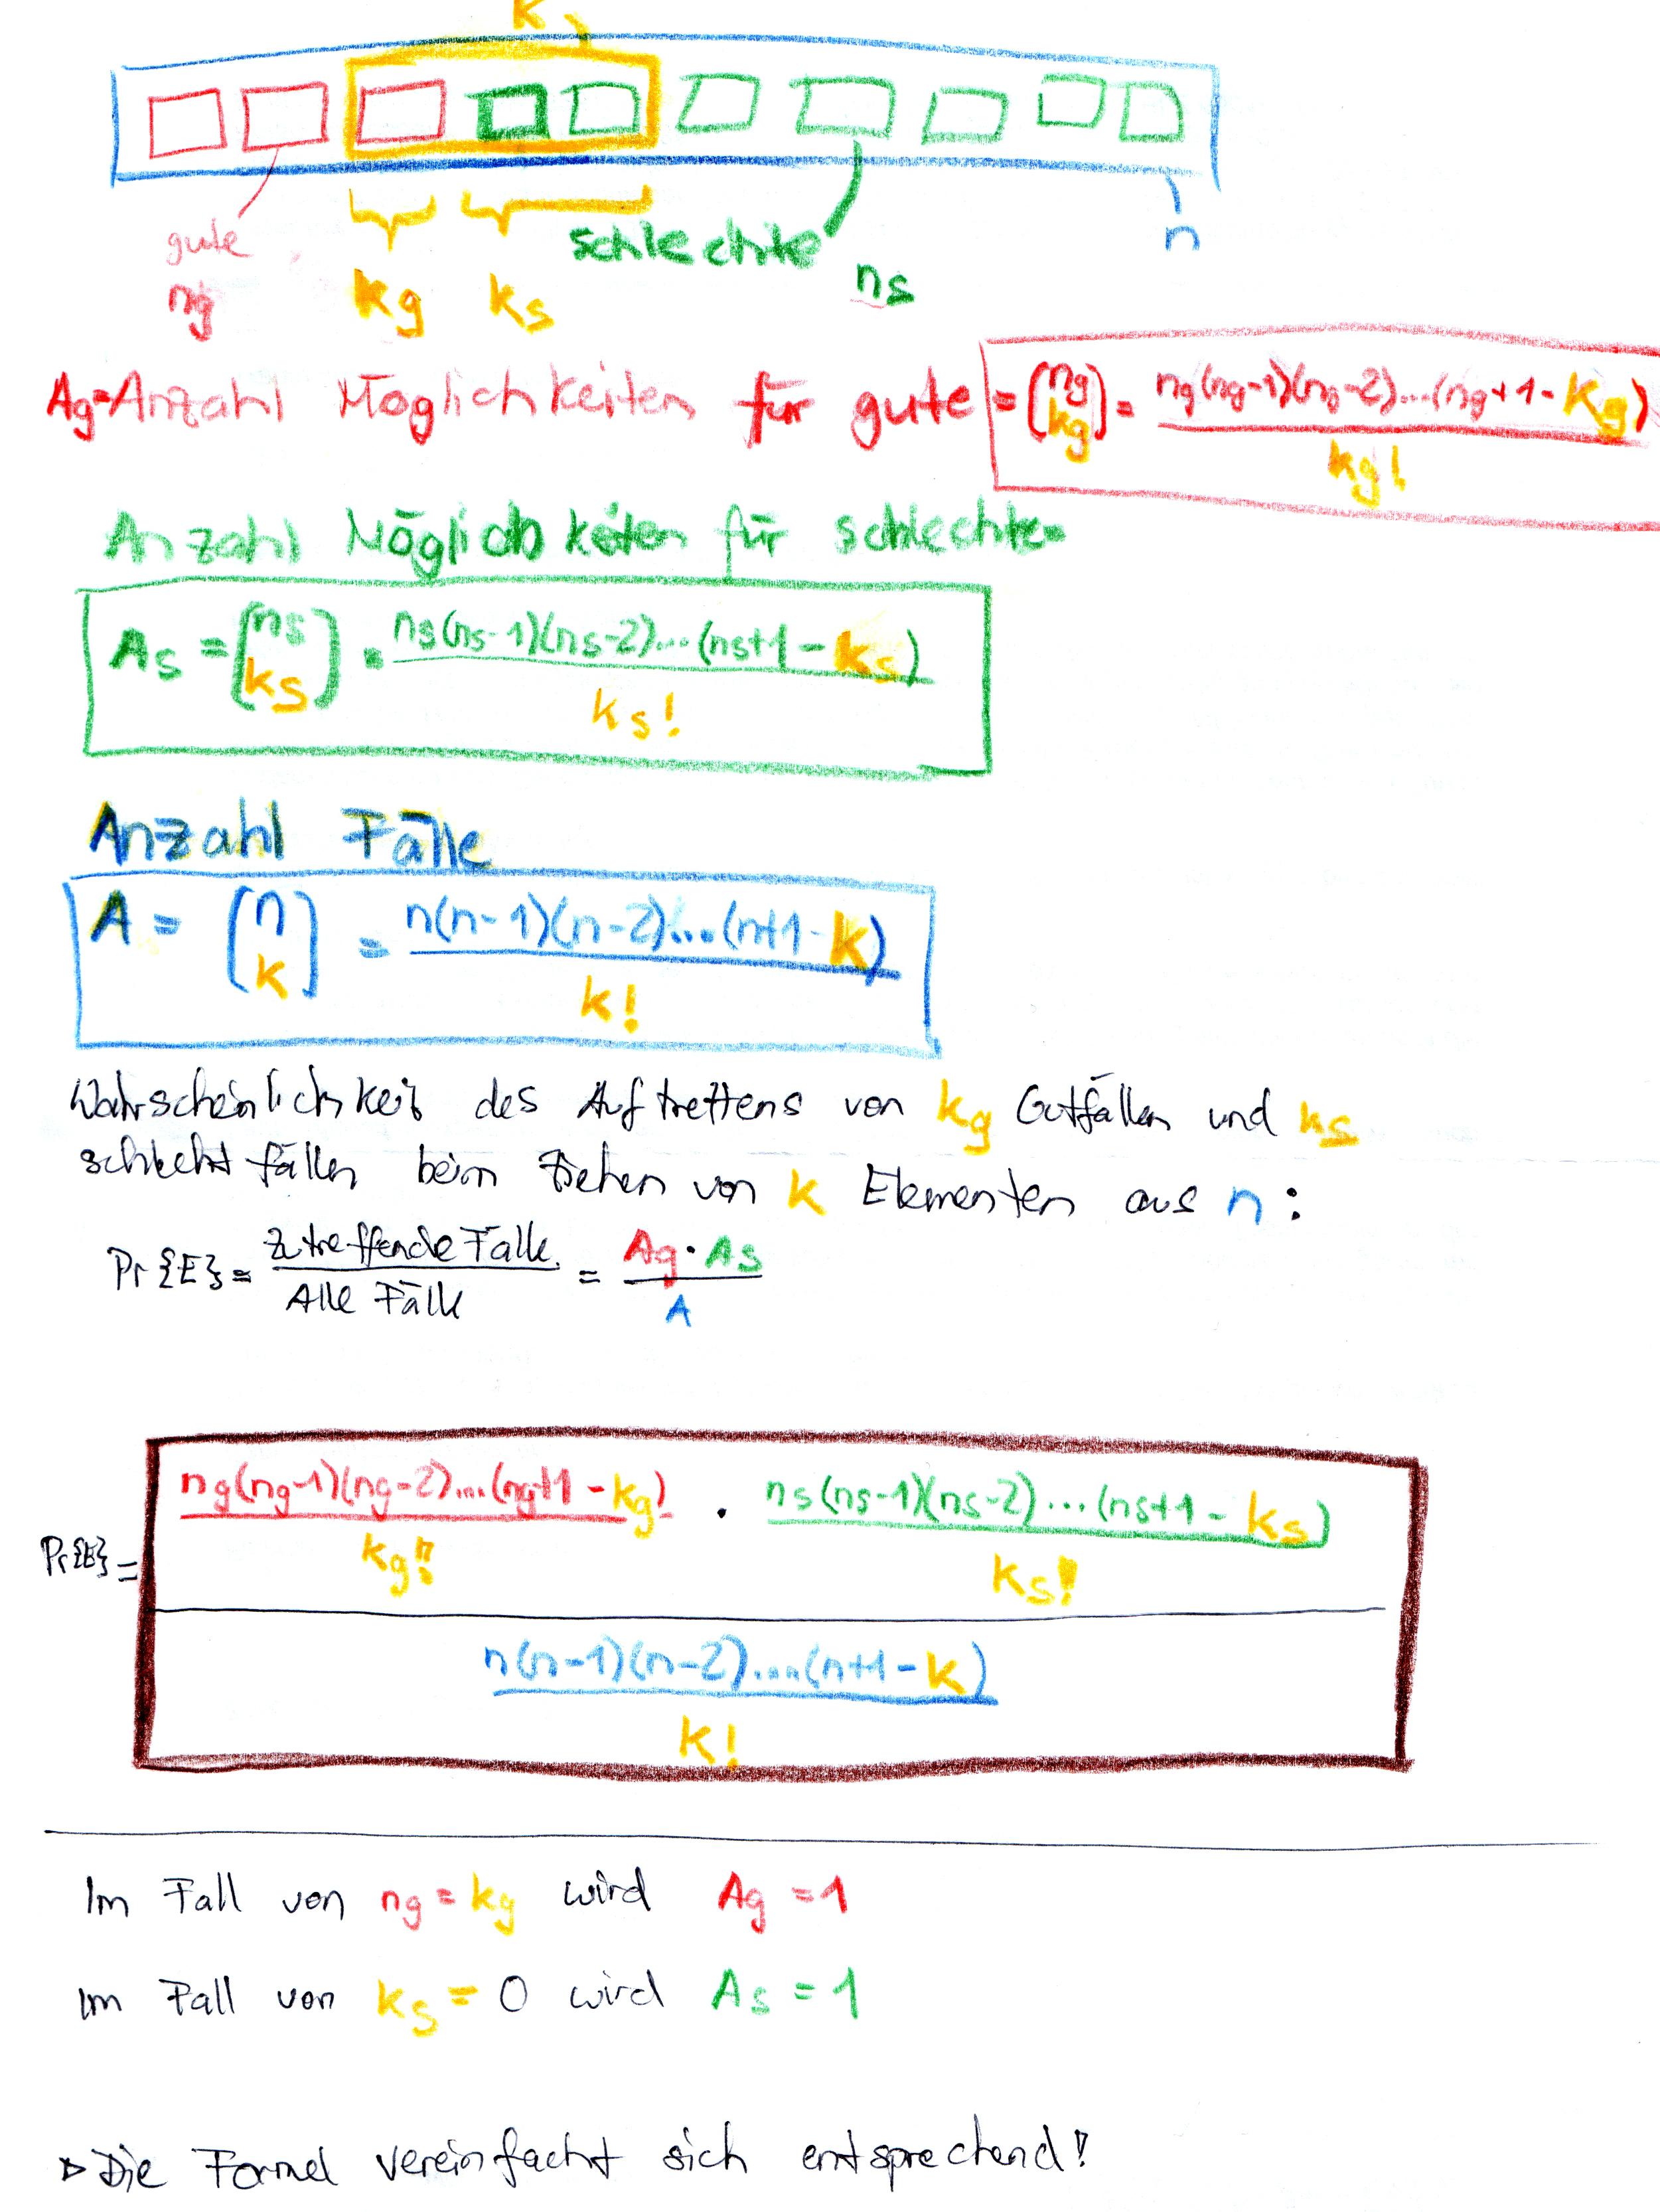 K
gute
ng
kg ks
schlechte
ns
n
Ag=Anzahl Möglichkeiten für gute = (ng kg) = ng(ng-1)(ng-2)...(ng+1-kg) / kg!
Anzahl Möglichkeiten für schlechte
As = (ns ks) = ns(ns-1)(ns-2)...(ns+1-ks) / ks!
Anzahl Fälle
A = (n k) = n(n-1)(n-2)...(n+1-k) / k!
Wahrscheinlichkeit des Auftrettens von kg Gutfällen und ks
schlechtfällen beim Ziehen von k Elementen aus n:
Pr{E} = Zutreffende Fälle / Alle Fälle = Ag·As / A
Pr{E} = ng(ng-1)(ng-2)...(ng+1-kg) / kg! · ns(ns-1)(ns-2)...(ns+1-ks) / ks!
n(n-1)(n-2)...(n+1-k) / k!
Im Fall von ng = kg wird Ag = 1
Im Fall von ks = 0 wird As = 1
▷ Die Formel vereinfacht sich entsprechend!